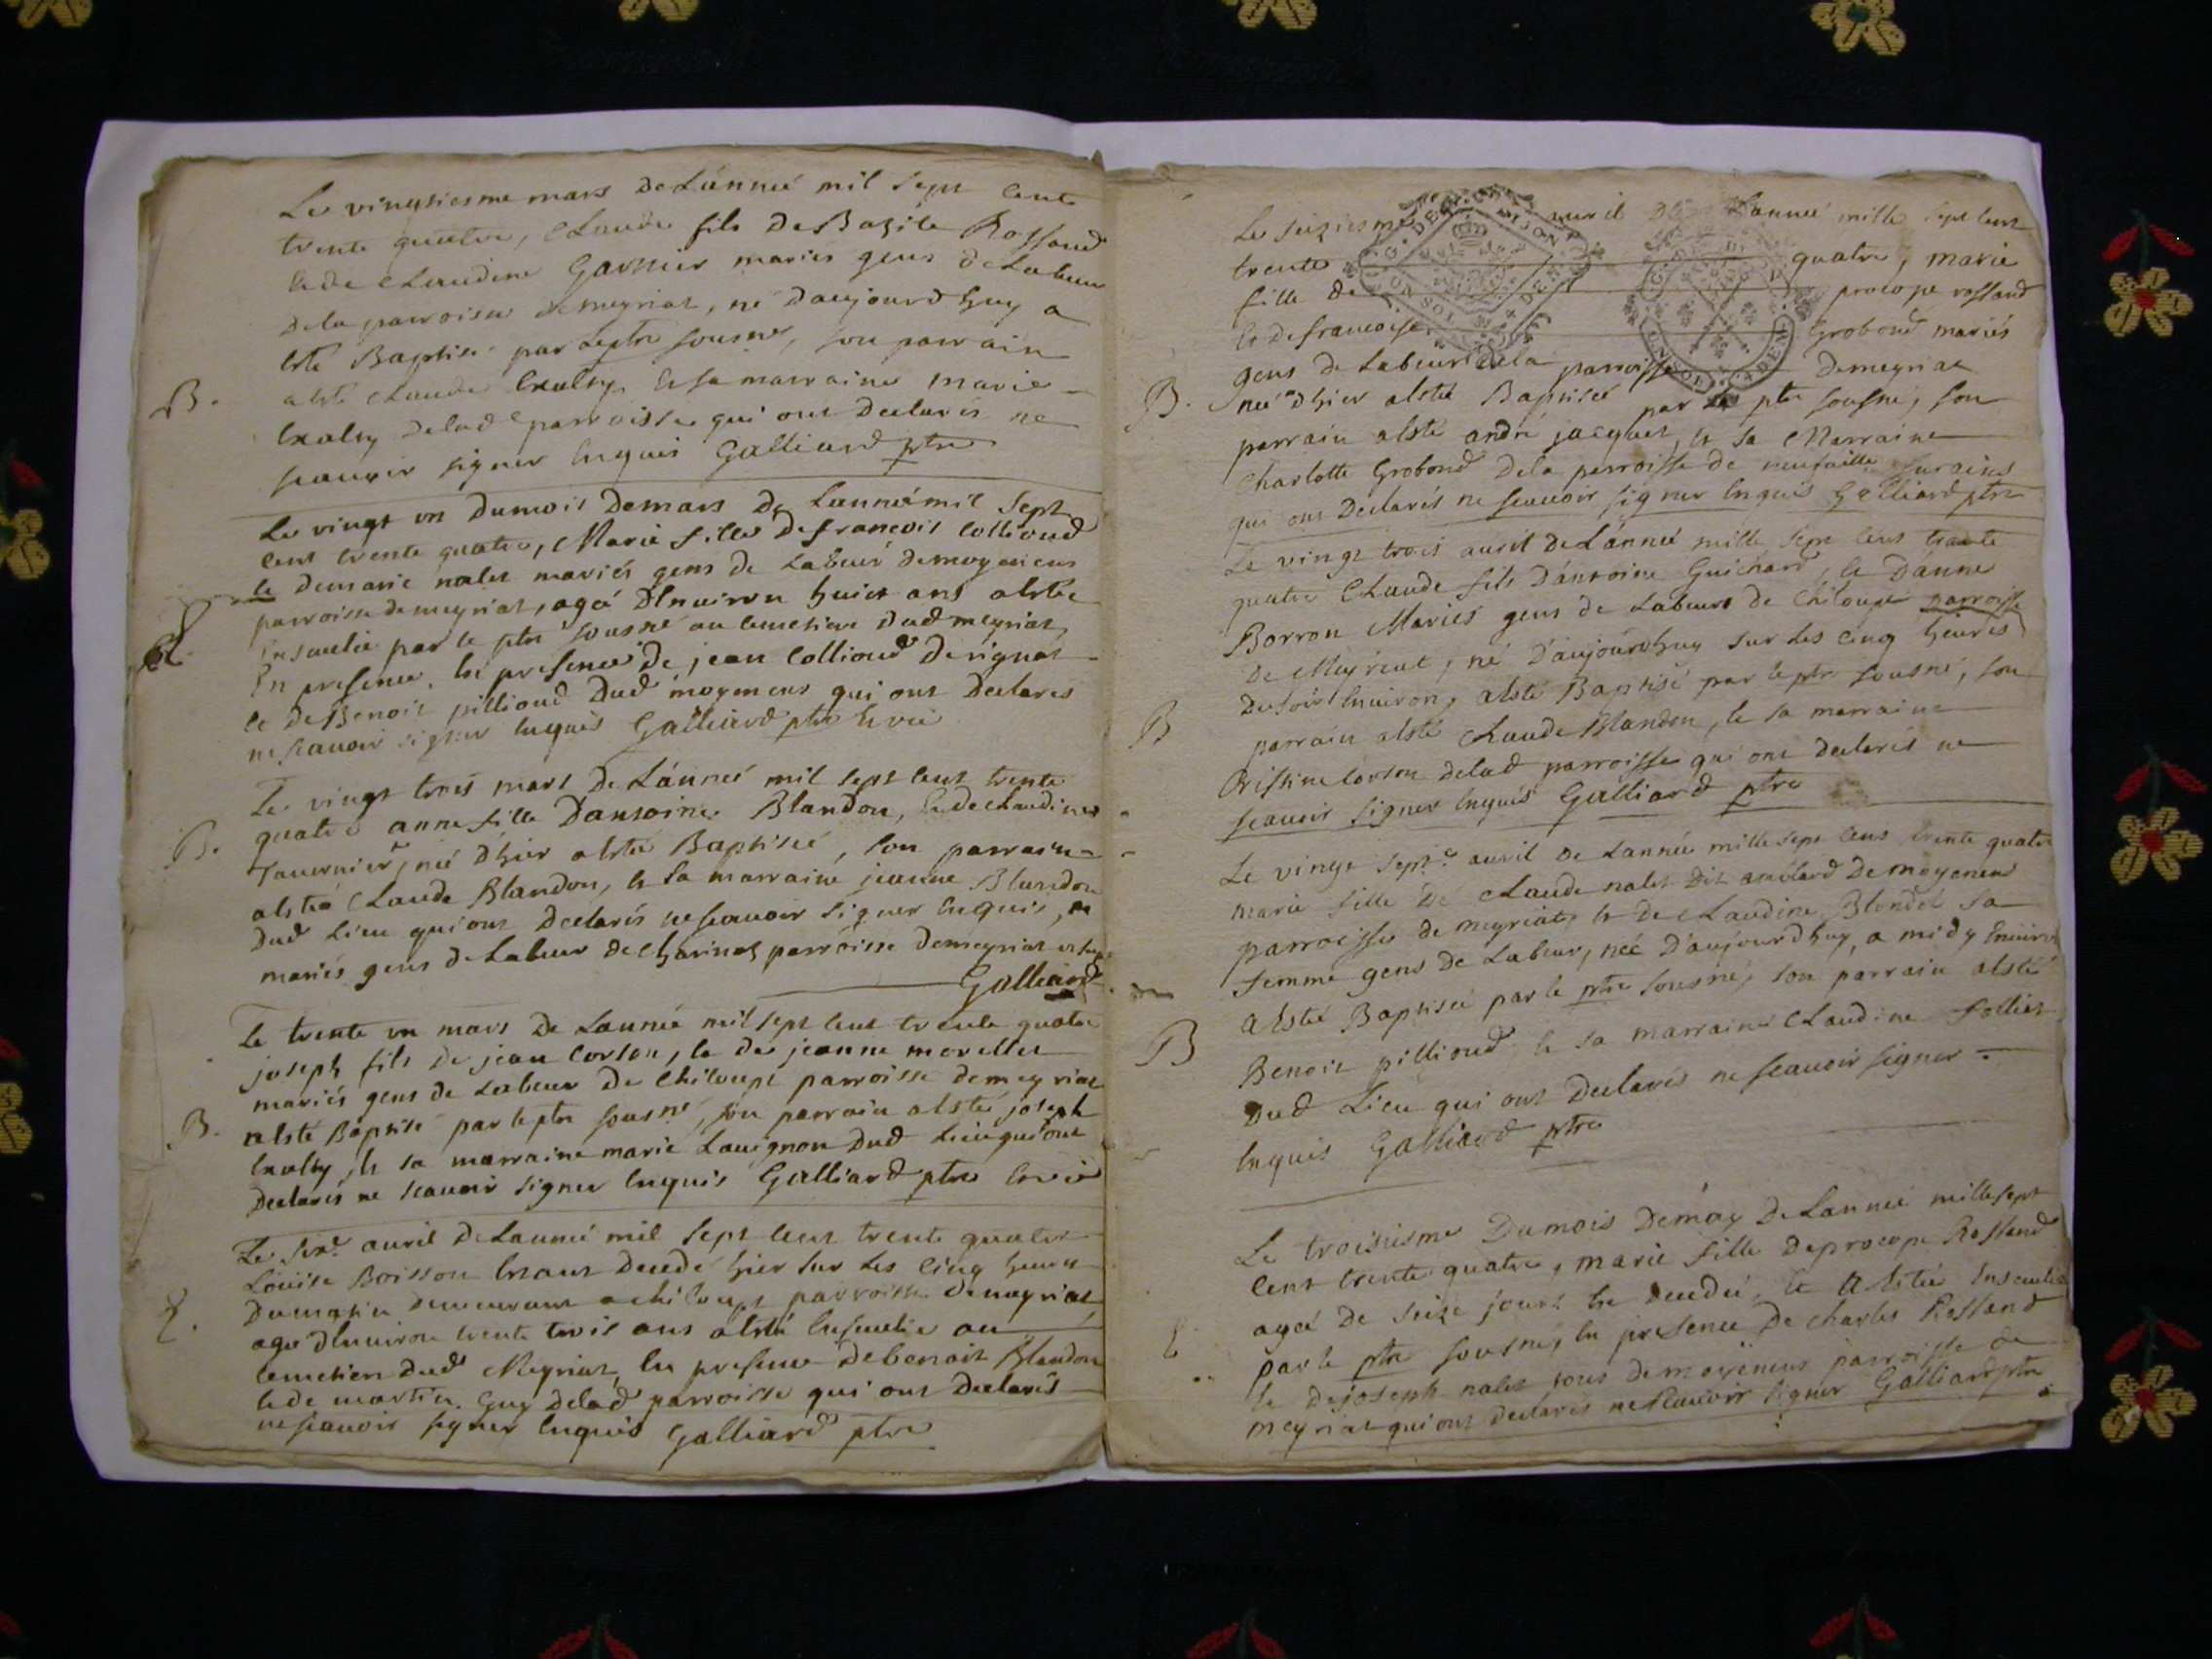 Le vingtiesme mars de L'année mil sept Cent
trente quatre, Claude fils de Basile Rossand
et de Claudine Garnier mariés gens de Labeur
de la parroisse de meyriat, né d'aujourdhuy a
esté Baptisé par le ptre sousné, son parrain
B. a esté Claude et sa marraine marie
delad parroisse qui ont declarés ne
scauoir signer enquis Galliard ptre
Le vingt un dumois de mars de Lannée mil sept
cent trente quatre, Marie fille de francois Collioud
et de marie nalet mariés gens de Labeur de moyeneus
parroisse de meyriat, agée d'enuiron huict ans a estée
enseuelie par le ptre sousné au cemetiere dud meyriat,
En presence, en presence de jean Collioud de rignat
et de Benoit pillioud dud moyeneus qui ont declares
ne scauoir signer enquis Galliard ptre
Le vingt trois mars de L'année mil sept cent trente
B. quatre anne fille D'antoine Blandon, et de Claudine
Tauernier, née d'hier a estée Baptisée, son parrain
a esté Claude Blandon, et sa marraine jeanne Blandon
dud Lieu qui ont declarés ne scauoir signer enquis,
mariés gens de Labeur de Charinas parroisse de meyriat
Galliard
Le trente un mars de Lannée mil sept cent trente quatre
joseph fils de jean Corson, et de jeanne morellet
mariés gens de Labeur de Chiloupt parroisse de meyriat
B. a esté Baptisé par le ptre sousné, son parrain a esté joseph
et sa marraine marie Lauignon dud Lieu qui ont
declarés ne scauoir signer enquis Galliard ptre
Le avril de Lannée mil sept cent trente quatre
Loüise Boisson decedé hier sur les cinq heures
E. du matin demeurant a chiloupt parroisse de meyriat
agé d'enuiron trente trois ans a esté enseuelie au
cemetiere dud Meyriat, en presence de benoit Blandon
et de martin Guy delad parroisse qui ont declarés
ne scauoir signer enquis Galliard ptre
Le seiziesme auril de Lannée mille sept cent
trente quatre, marie
fille de procope rossand
et de francoise Grobond mariés
gens de Labeur de la parroisse de meyriat
B. née d'hier a esté Baptisée par le ptre sousné, son
parrain a esté andré jacquet, et sa Marraine
Charlotte Grobond de la parroisse de
qui ont declarés ne scauoir signer enquis Galliard ptre
Le vingt trois auril de L'année mille sept cent trente
quatre Claude fils D'antoine Guichard, et D'anne
Borron Mariés gens de Labeurs de Chiloupt parroisse
de Meyriat, né D'aujourdhuy sur les cinq heures
B du soir enuiron, a esté Baptisé par le ptre sousné, son
parrain a esté Claude Blandon, et sa marraine
Cristine Corson delad parroisse qui ont declarés ne
scauoir signer enquis Galliard ptre
Le vingt sept auril de Lannée mille sept cens trente quatre
marie fille de Claude nalet dit de moyeneus
parroisse de meyriat, et de Claudine Blondel sa
femme gens de Labeur, née D'aujourdhuy, a midy enuiron
B a esté Baptisée par le ptre sousné, son parrain a esté
Benoit pillioud et sa marraine Claudine
dud Lieu qui ont declarés ne scauoir signer
enquis Galliard ptre
Le troisiesme Dumois De may de Lannée mille sept
cent trente quatre, marie fille de procope Rossand
E agée de seize jours est decedée, et a estée enseuelie
par le ptre sousné, en presence de charles Rossand
et de joseph nalet tous de moyeneus parroisse de
meyriat qui ont declarés ne scauoir signer Galliard ptre